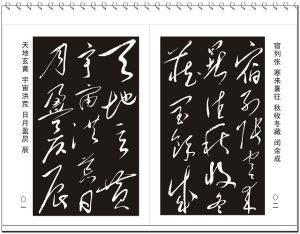 天地玄黃
宇宙洪荒日
月盈昃辰
天地玄黄 宇宙洪荒 日月盈昃 辰
〇一
宿列張寒來
暑往秋收冬
藏閏餘成
宿列张 寒来暑往 秋收冬藏 闰余成
〇二